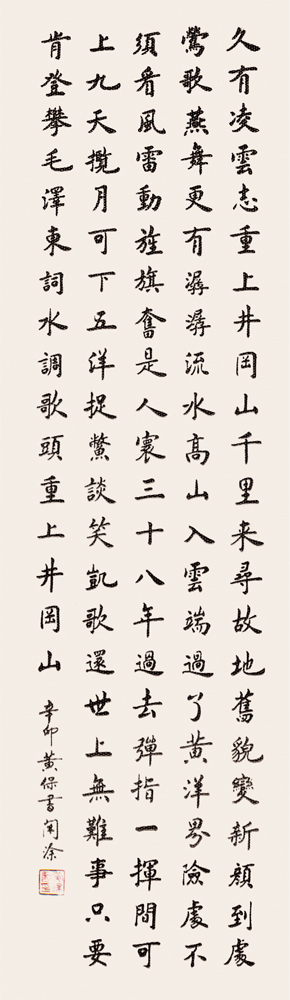 久有凌雲志重上井岡山千里来尋故地舊貌變新顔到處
鶯歌燕舞更有潺潺流水高山入雲端過了黃洋界險處不
須看風雷動旌旗奮是人寰三十八年過去彈指一揮間可
上九天攬月可下五洋捉鱉談笑凱歌還世上無難事只要
肯登攀毛澤東詞水調歌頭重上井岡山
辛卯黃保書